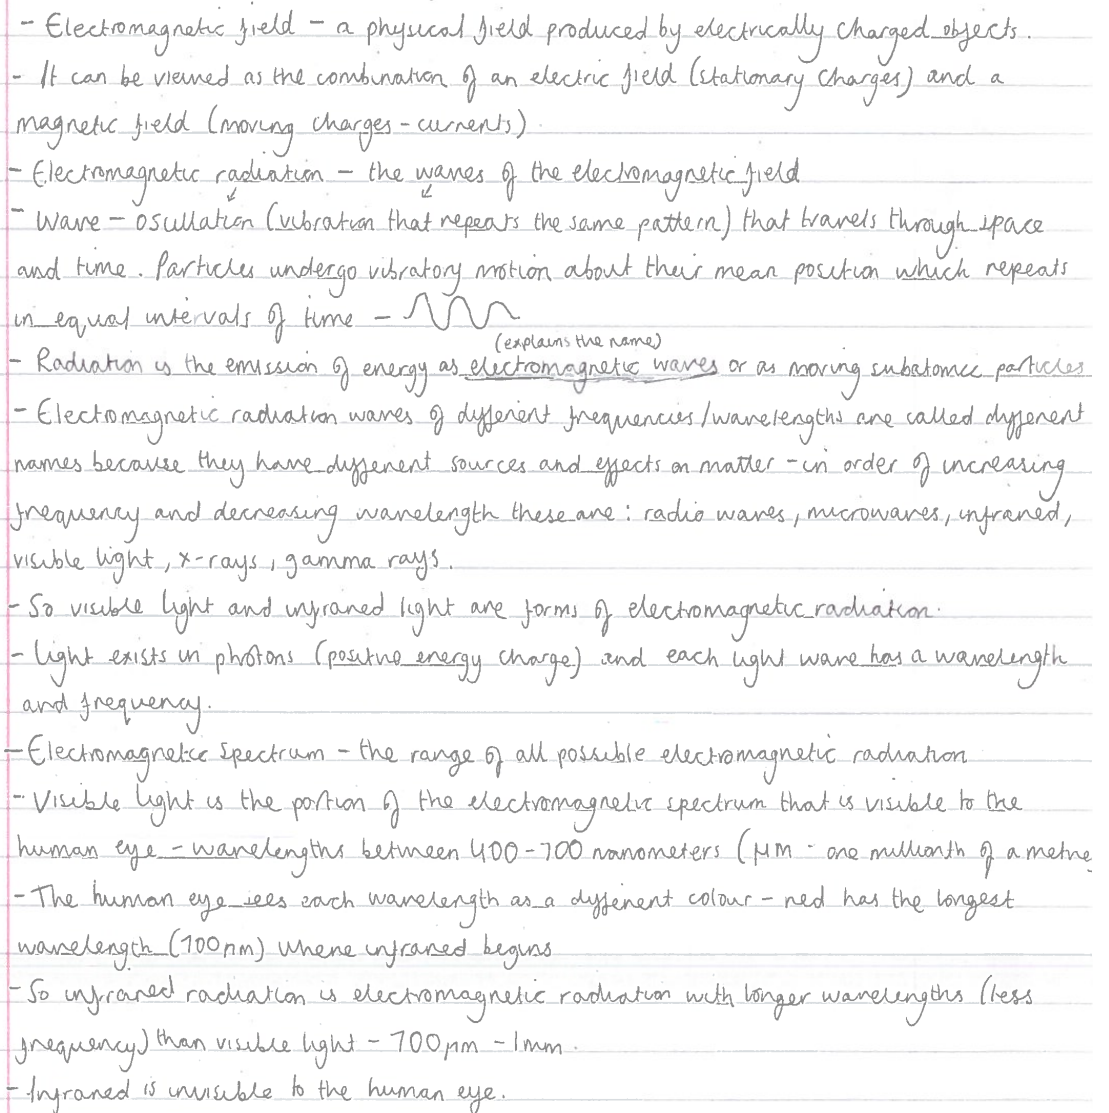 - Electromagnetic field - a physical field produced by electrically charged objects.
- It can be viewed as the combination of an electric field (stationary charges) and a
magnetic field (moving charges - currents)
- Electromagnetic radiation - the waves of the electromagnetic field
- Wave - oscillation (vibration that repeats the same pattern) that travels through space
and time. Particles undergo vibratory motion about their mean position which repeats
in equal intervals of time -
(explains the name)
- Radiation is the emission of energy as electromagnetic waves or as moving subatomic particles
- Electromagnetic radiation waves of different frequencies/wavelengths are called different
names because they have different sources and effects on matter - in order of increasing
frequency and decreasing wavelength these are: radio waves, microwaves, infrared,
visible light, x-rays, gamma rays.
- So visible light and infrared light are forms of electromagnetic radiation.
- Light exists in photons (positive energy charge) and each light wave has a wavelength
and frequency.
- Electromagnetic spectrum - the range of all possible electromagnetic radiation
- Visible light is the portion of the electromagnetic spectrum that is visible to the
human eye - wavelengths between 400-700 nanometers (μm - one millionth of a metre
- The human eye sees each wavelength as a different colour - red has the longest
wavelength (700nm) where infrared begins
- So infrared radiation is electromagnetic radiation with longer wavelengths (less
frequency) than visible light - 700μm - 1mm.
- Infrared is invisible to the human eye.